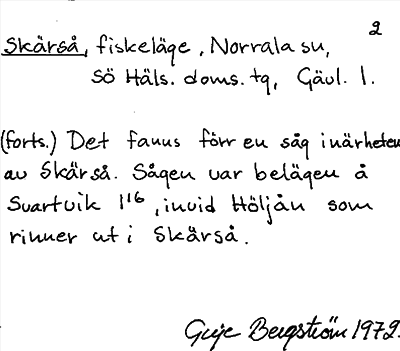 2
Skärså, fiskeläge, Norrala sn,
Sö Häls. doms. tg, Gävl. l.
(forts.) Det fanns förr en såg i närheten
av Skärså. Sågen var belägen å
Svartvik 1¹⁶, invid Höljån som
rinner ut i Skärså.
Bergström 1972.